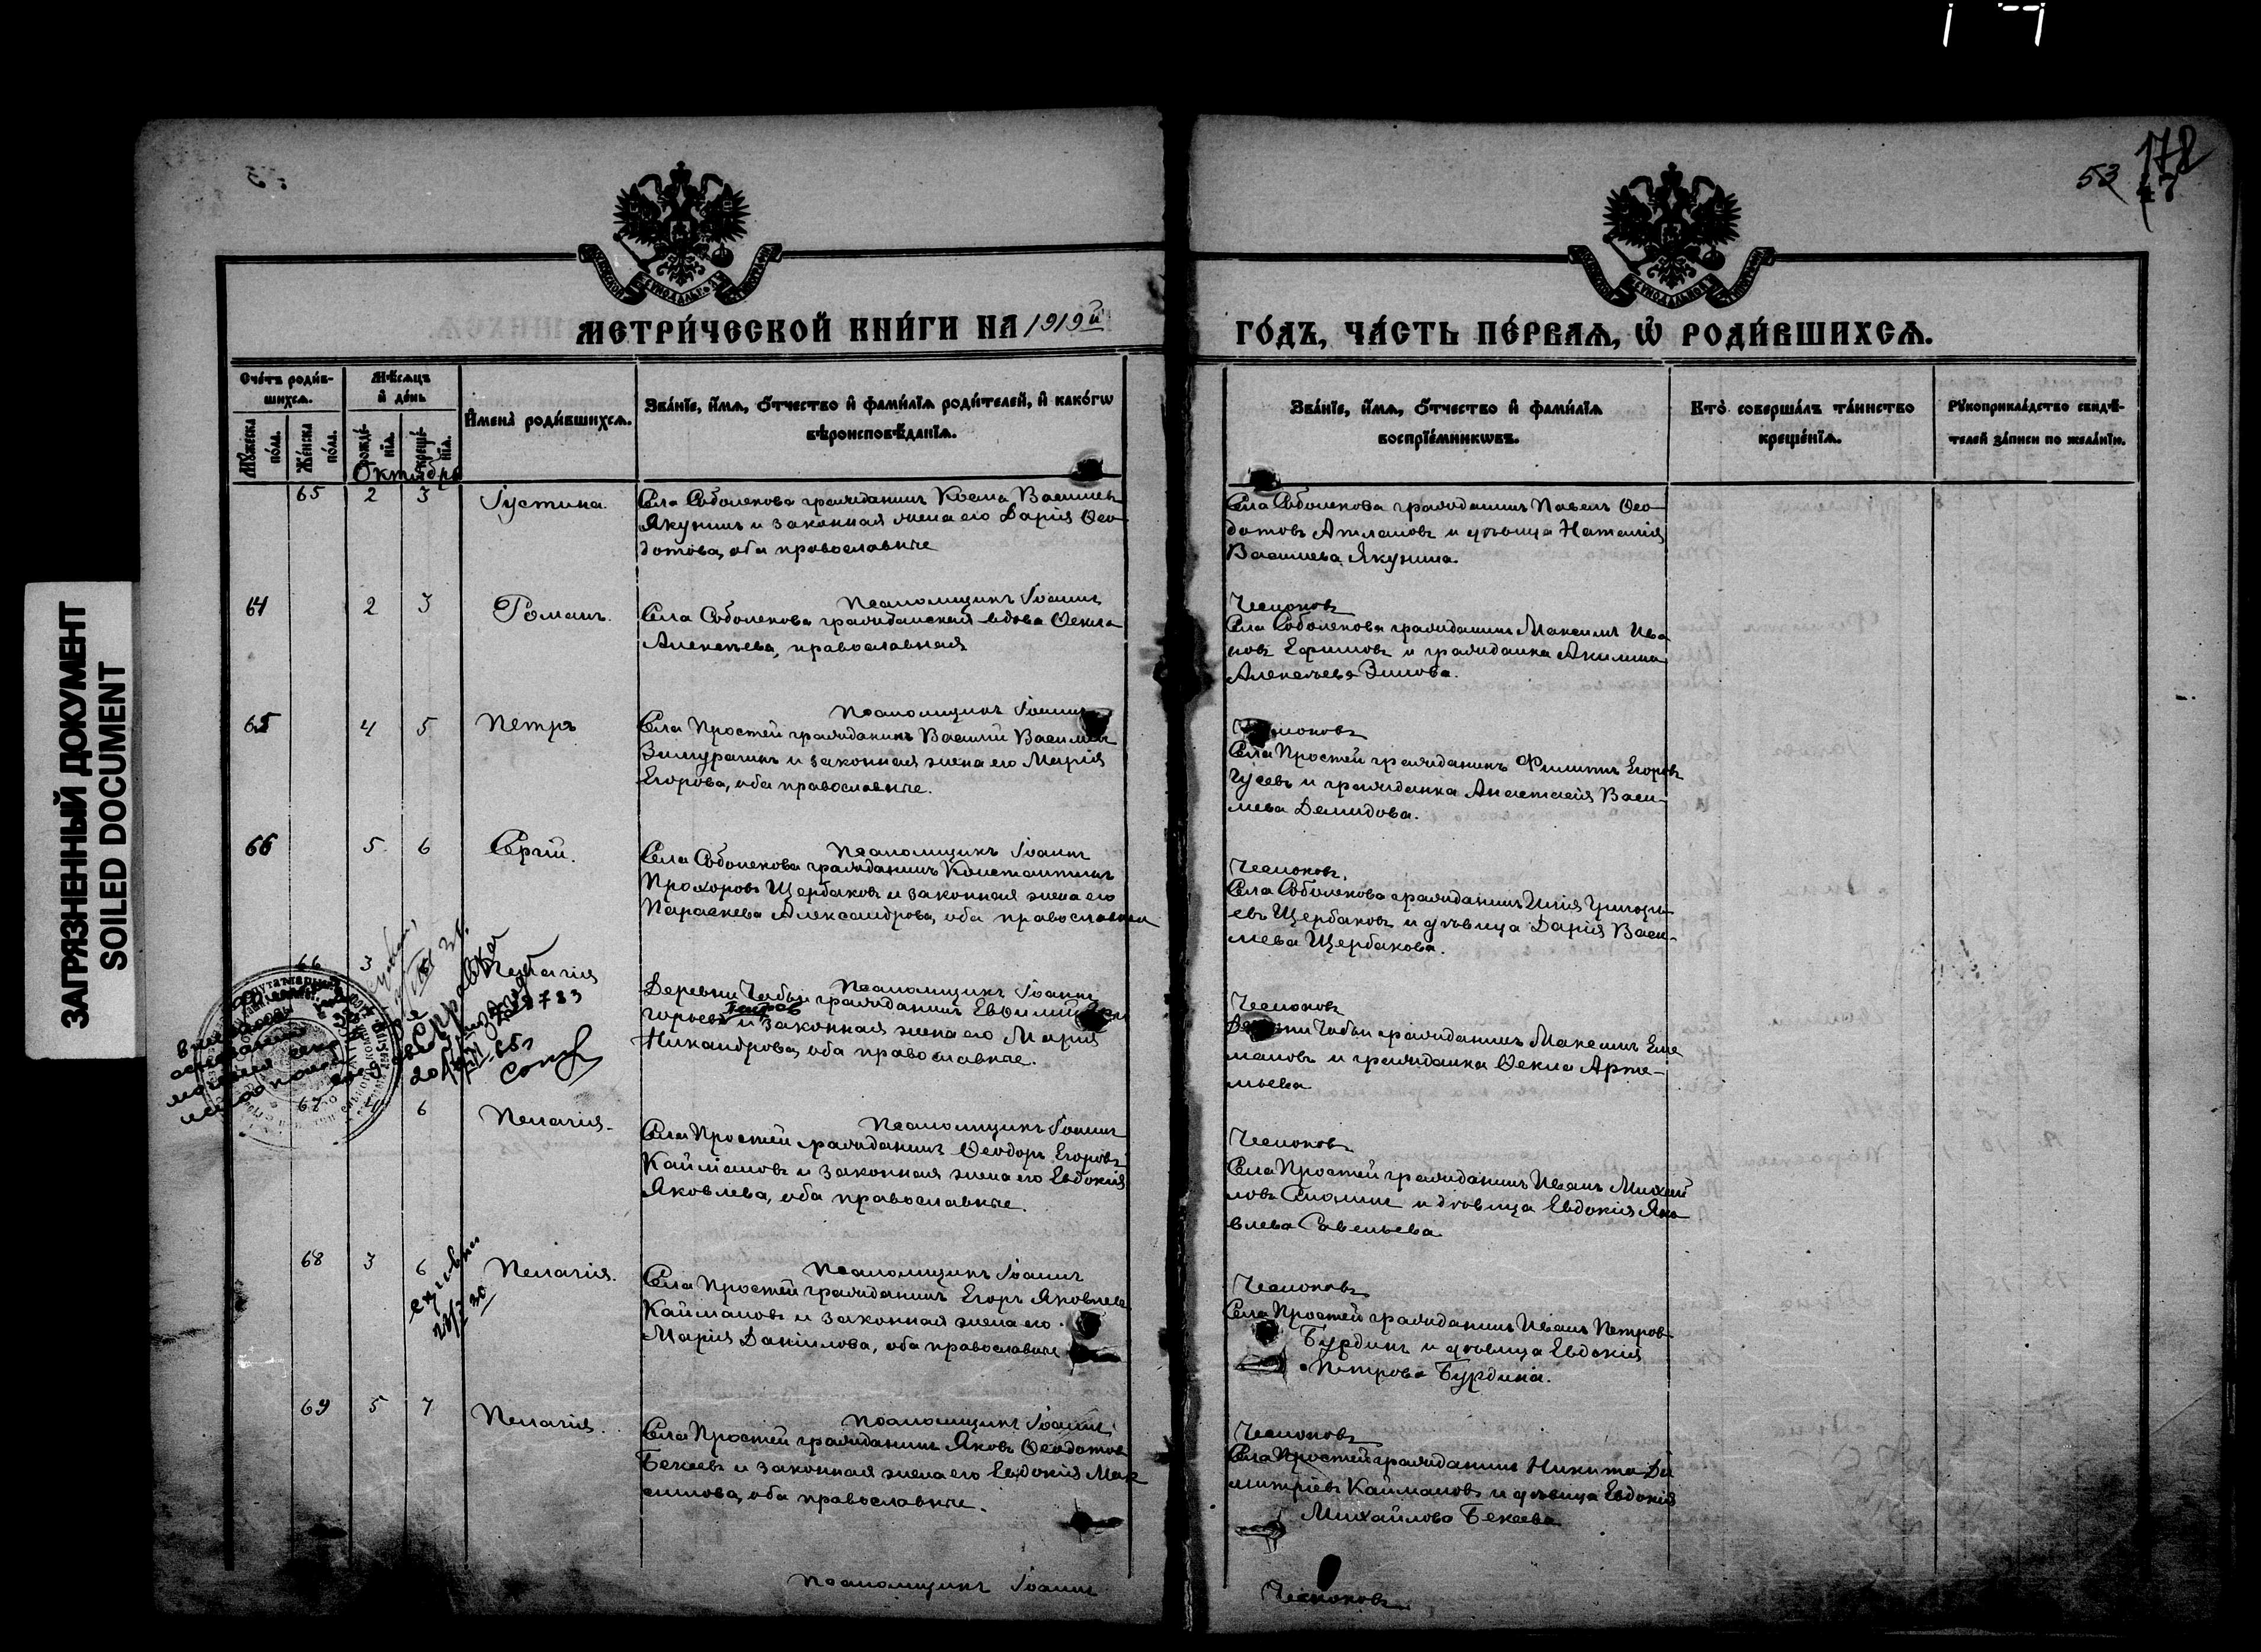 53
178
47
МЕТРИ́ЧЕСКОЙ КНИ́ГИ НА 1919й
ГО́ДЪ, ЧА́СТЬ ПЕ́РВАѦ, Ѡ҆ РОДИ́ВШИХСѦ.
Сче́тъ роди́в-
шихсѧ.
Мѣ́сѧцъ
и҆ де́нь
И҆мена̀ роди́вшихсѧ.
Зва́нїе, и҆́мѧ, ѻ҆́тчество и҆ фами́лїѧ роди́телей, и҆ како́гѡ
вѣроисповѣ́данїѧ.
Зва́нїе, и҆́мѧ, ѻ҆́тчество и҆ фами́лїѧ
воспрїе́мникѡвъ.
Кто̀ соверша́лъ та́инство
креще́нїѧ.
Рꙋкоприкла́дство свидѣ́-
телей за́писи по жела́нїю.
Мꙋ́жеска
по́ла.
Же́нска
по́ла.
рожде́-
нїѧ.
креще́-
нїѧ.
Октябрь
65 2 3 Іустина.
Села Соболекова гражданинъ Косма Васильев
Якунинъ и законная жена его Дарія Ѳео-
дотова, оба православные
Села Соболекова гражданинъ Павелъ Ѳео-
дотовъ Атлановъ и дѣвица Наталія
Васильева Якунина.
Псаломщикъ Іоаннъ
Чесноковъ
64 2 3 Романъ.
Села Соболекова гражданская вдова Ѳекла
Алексѣева, православная
Села Соболекова гражданинъ Максимъ Ива
новъ Ефимовъ и гражданка Акилина
Алексѣева Зимова.
Псаломщикъ Іоаннъ
Чесноковъ
65 4 5 Петръ
Села Простей гражданинъ Василій Васильев
Зимурагинъ и законная жена его Марія
Егорова, оба православные.
Села Простей гражданинъ Филиппъ Егоровъ
Гусевъ и гражданка Анастасія Васи-
льева Демидова.
Псаломщикъ Іоаннъ
Чесноковъ.
66 5 6 Сергій.
Села Соболекова гражданинъ Константинъ
Прохоровъ Щербаковъ и законная жена его
Параскева Александрова, оба православные
Села Соболекова гражданинъ Илія Григорь-
евъ Щербаковъ и дѣвица Дарія Васи-
льева Щербакова.
Псаломщикъ Іоаннъ
Чесноковъ
66 3 Пелагія
справка
20/VII-65г
Деревни Чабьи гражданинъ Евѳимій Гри
горьевъ и законная жена его Марія
Никандрова, оба православные.
Деревни Чабьи гражданинъ Максимъ Еме
льяновъ и гражданка Ѳекла Арте-
мьева
Псаломщикъ Іоаннъ
Чесноковъ
67 4 6 Пелагія.
Села Простей гражданинъ Ѳеодоръ Егоровъ
Каймановъ и законная жена его Евдокія
Яковлева, оба православные.
Села Простей гражданинъ Иванъ Михай
ловъ и дѣвица Евдокія Яко
влева Савельева
Псаломщикъ Іоаннъ
Чесноковъ
68 3 6 Пелагія.
Села Простей гражданинъ Егоръ Яковлев
Каймановъ и законная жена его
Марія Даніилова, оба православные
Села Простей гражданинъ Иванъ Петров
Бурдинъ и дѣвица Евдокія
Петрова Бурдина.
Псаломщикъ Іоаннъ
Чесноковъ
69 5 7 Пелагія.
Села Простей гражданинъ Яковъ Ѳеодотов
Бекеевъ и законная жена его Евдокія Мак
симова, оба православные.
Села Простей гражданинъ Никита Ди
митріевъ Каймановъ и дѣвица Евдокія
Михайлова Бекеева
Псаломщикъ Іоаннъ
Чесноковъ
ЗАГРЯЗНЕННЫЙ ДОКУМЕНТ
SOILED DOCUMENT